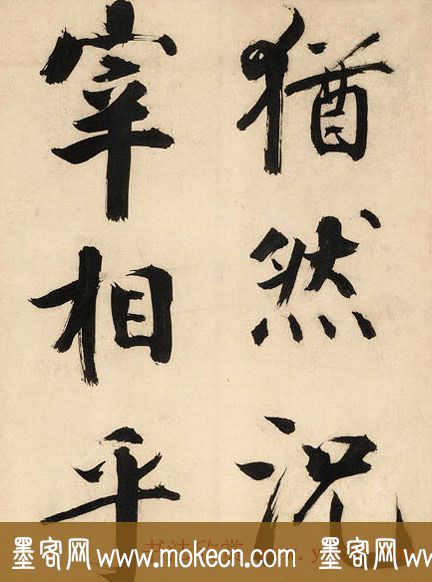 猶然況
宰相乎
墨客网 www.mokecn.com 墨客网